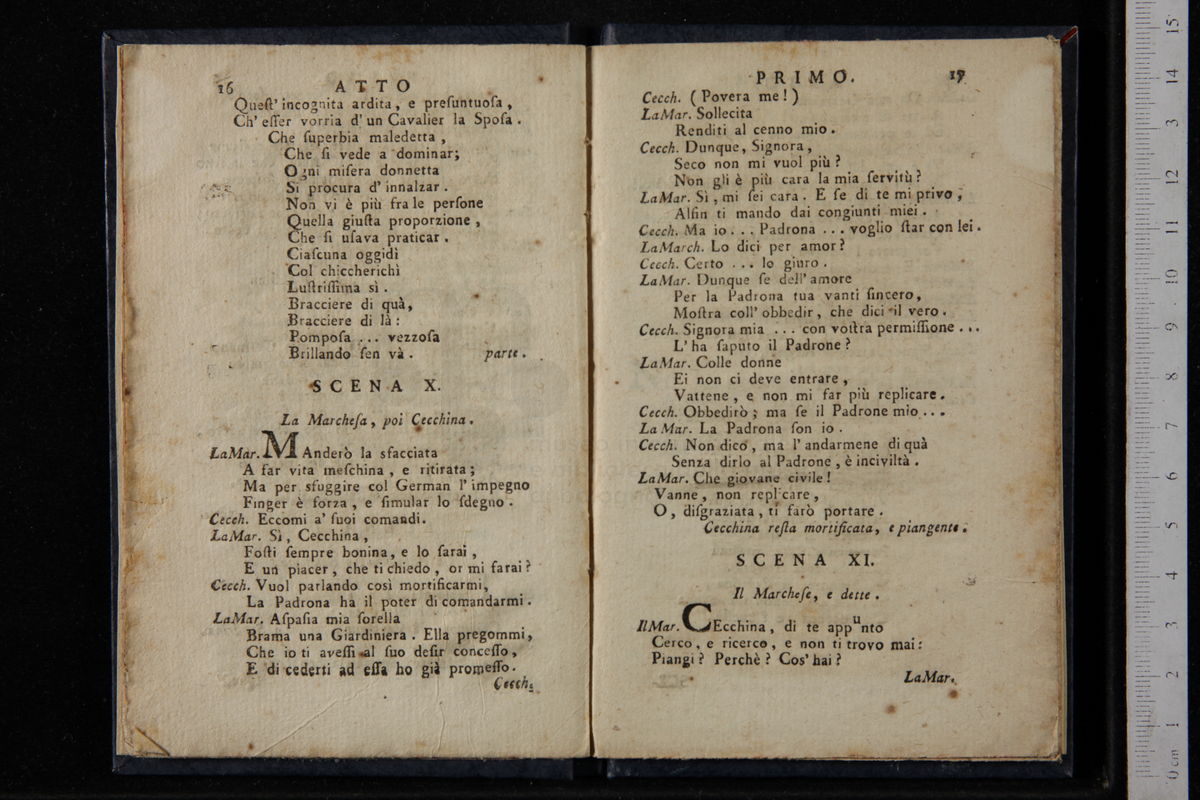 16 ATTO
Queſt' incognita ardita, e preſuntuoſa,
Ch' eſſer vorria d' un Cavalier la Spoſa.
Che ſuperbia maledetta,
Che ſi vede a dominar;
Ogni miſera donnetta
Si procura d' innalzar.
Non vi è più fra le perſone
Quella giuſta proporzione,
Che ſi uſava praticar.
Ciaſcuna oggidì
Col chiccherichì
Luſtriſſima sì.
Bracciere di quà,
Bracciere di là:
Pompoſa ... vezzoſa
Brillando ſen và. parte.
SCENA X.
La Marcheſa, poi Cecchina.
LaMar. MAnderò la sfacciata
A far vita meſchina, e ritirata;
Ma per sfuggire col German l' impegno
Finger è forza, e ſimular lo ſdegno.
Cecch. Eccomi a' ſuoi comandi.
LaMar. Sì, Cecchina,
Foſti ſempre bonina, e lo ſarai,
E un piacer, che ti chiedo, or mi farai?
Cecch. Vuol parlando così mortificarmi,
La Padrona ha il poter di comandarmi.
LaMar. Aſpaſia mia ſorella
Brama una Giardiniera. Ella pregommi,
Che io ti aveſſi al ſuo deſir conceſſo,
E di cederti ad eſſa ho già promeſſo.
Cecch.
PRIMO. 17
Cecch. (Povera me!)
LaMar. Sollecita
Renditi al cenno mio.
Cecch. Dunque, Signora,
Seco non mi vuol più?
Non gli è più cara la mia ſervitù?
LaMar. Sì, mi ſei cara. E ſe di te mi privo,
Alfin ti mando dai congiunti miei.
Cecch. Ma io... Padrona ... voglio ſtar con lei.
LaMarch. Lo dici per amor?
Cecch. Certo ... lo giuro.
LaMar. Dunque ſe dell' amore
Per la Padrona tua vanti ſincero,
Moſtra coll' obbedir, che dici il vero.
Cecch. Signora mia ... con voſtra permiſſione...
L' ha ſaputo il Padrone?
LaMar. Colle donne
Ei non ci deve entrare,
Vattene, e non mi far più replicare.
Cecch. Obbedirò; ma ſe il Padrone mio...
La Mar. La Padrona ſon io.
Cecch. Non dico, ma l' andarmene di quà
Senza dirlo al Padrone, è inciviltà.
LaMar. Che giovane civile!
Vanne, non replicare,
O, diſgraziata, ti farò portare.
Cecchina reſta mortificata, e piangente.
SCENA XI.
Il Marcheſe, e dette.
IlMar. CEcchina, di te appunto
Cerco, e ricerco, e non ti trovo mai:
Piangi? Perchè? Cos' hai?
LaMar.
15
14
3
12
11
10
9
8
7
6
5
4
3
2
1
0 cm